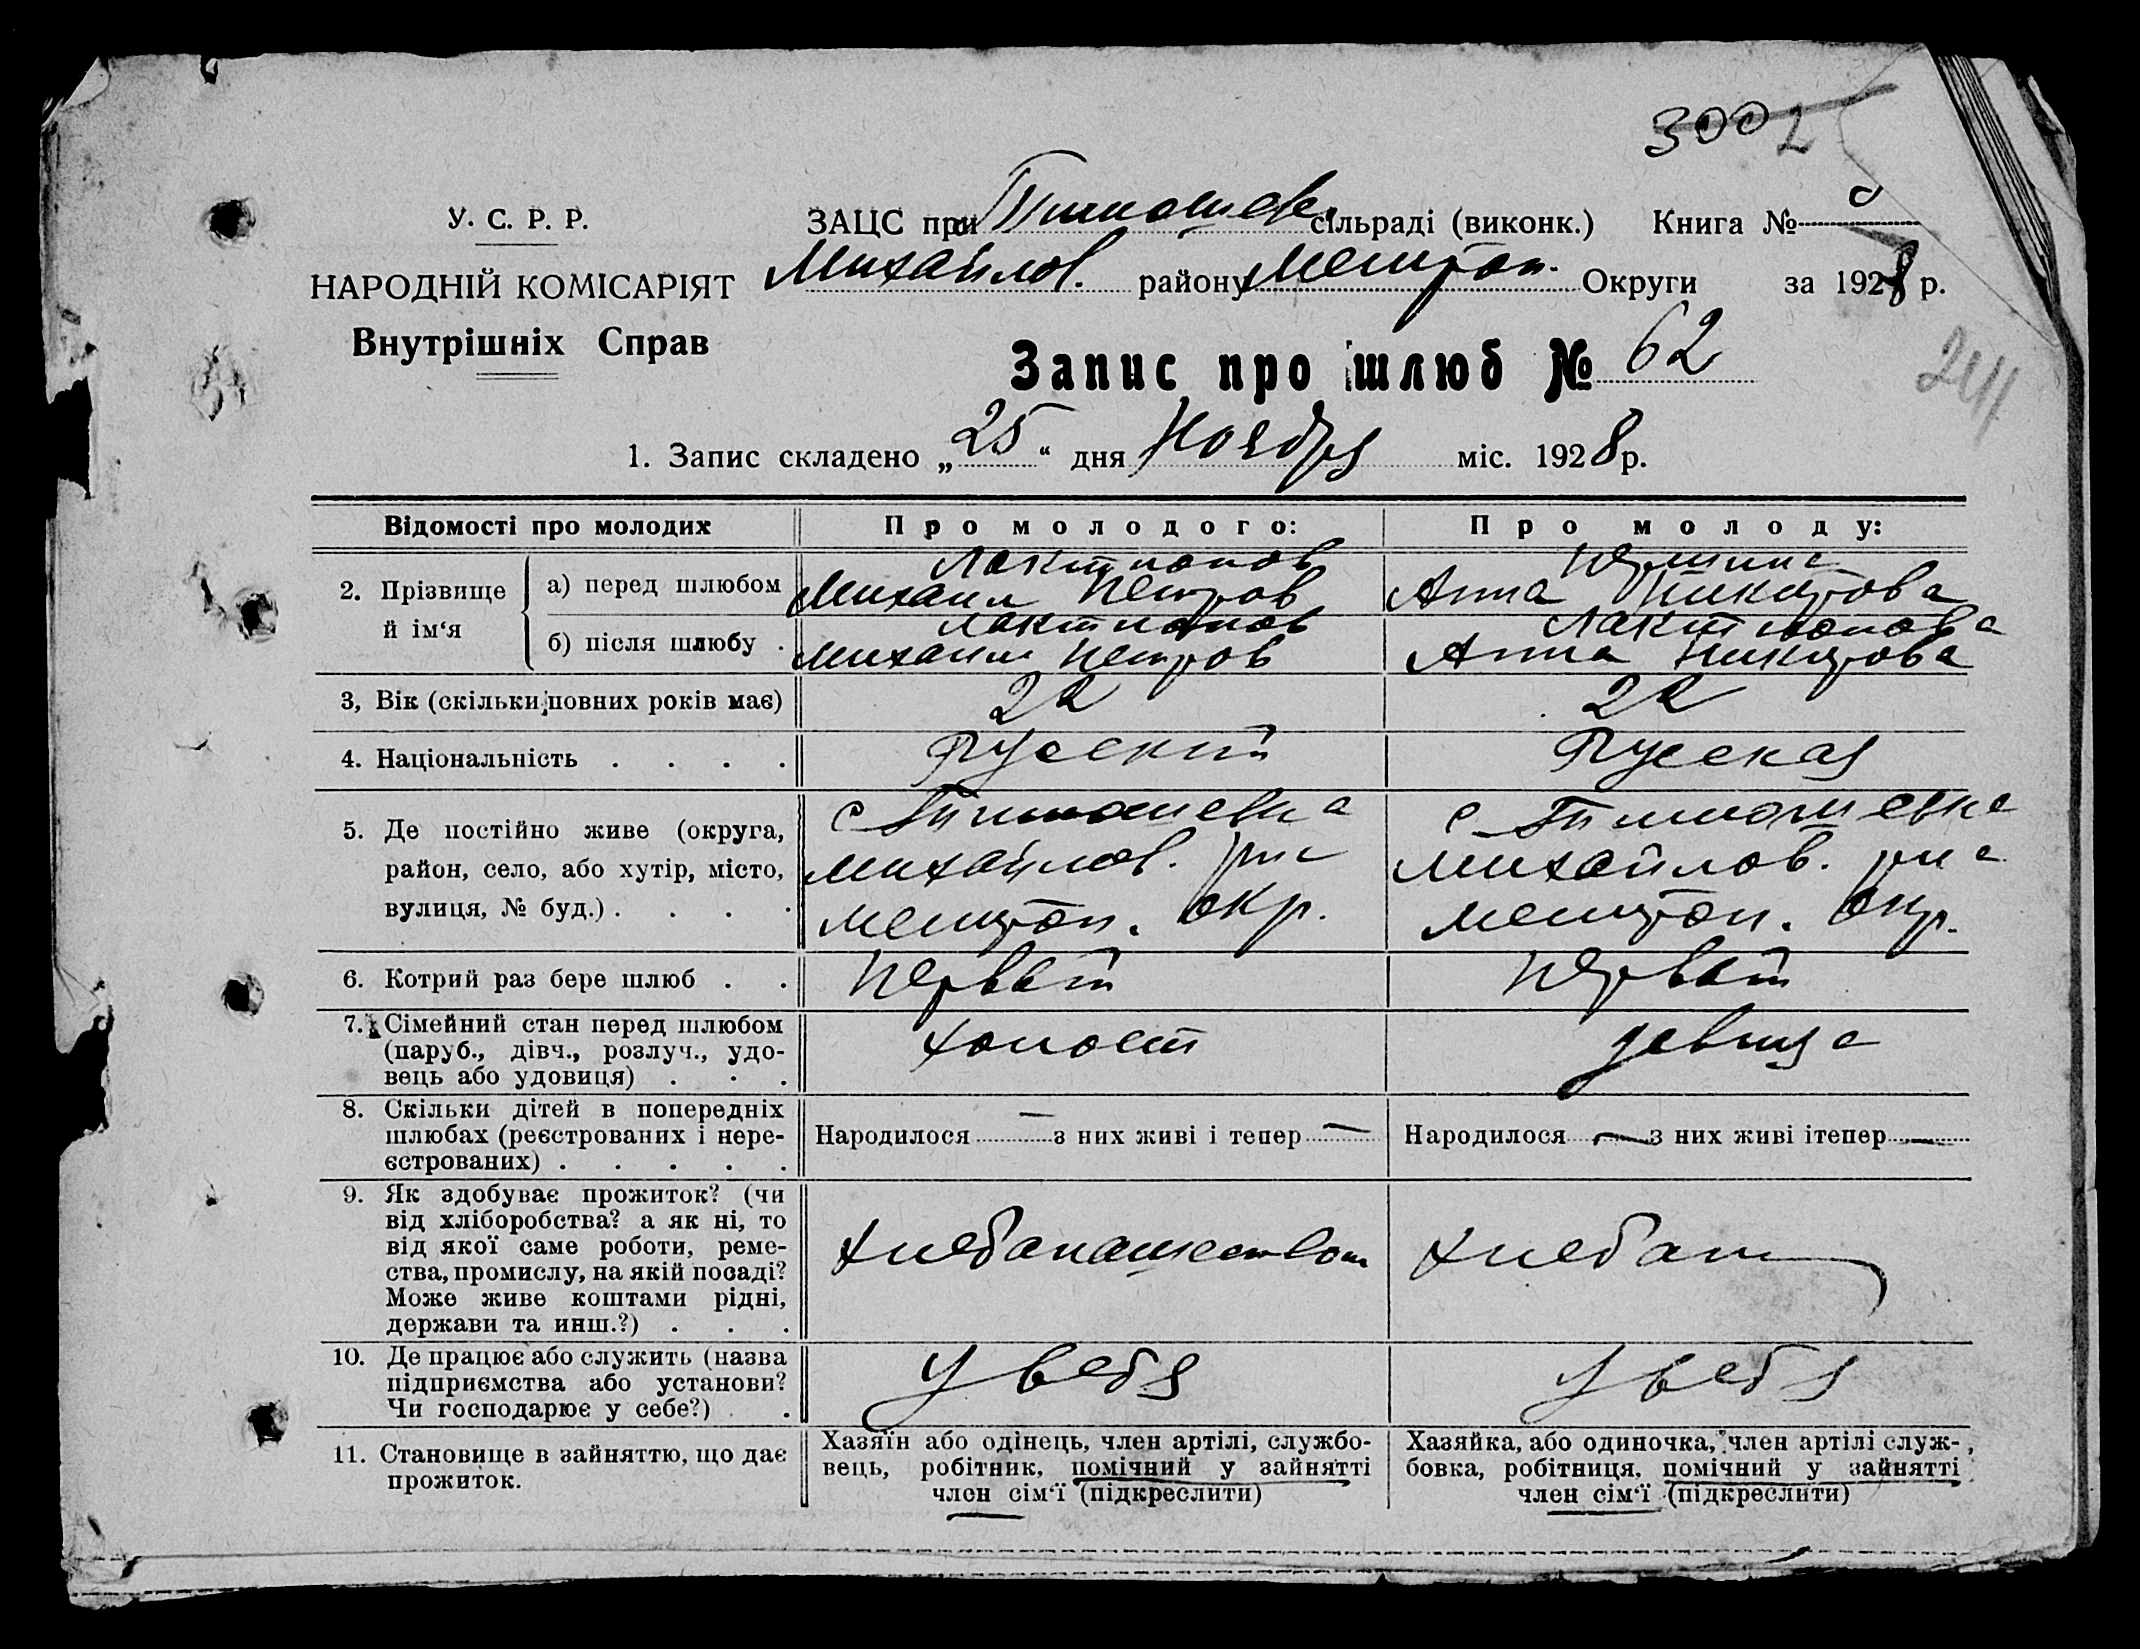 3002
У. С. Р. Р.
ЗАЦС при Тимошев. сільраді (виконк.) Книга №
НАРОДНІЙ КОМІСАРІЯТ
Михайлов. району Мелитоп. Округи за 1928 р.
Внутрішніх Справ
Запис про шлюб № 62
244
1. Запис складено „25“ дня Ноября міс. 1928 р.
Відомості про молодих
Про молодого:
Про молоду:
2. Прізвище й ім‘я
а) перед шлюбом
Лактионов
Михаил Петров
Анна Никитова
б) після шлюбу .
Лактионов
Михаил Петров
Лактионова
Анна Никитова
3, Вік (скільки повних років має)
22
22
4. Національність . . . .
Русский
Русская
5. Де постійно живе (округа,
район, село, або хутір, місто,
вулиця, № буд.) . . . .
с Тимошевка
Михайлов. р-на
Мелитоп. окр.
с. Тимошевка
Михайлов. р-на
Мелитоп. окр.
6. Котрий раз бере шлюб . .
Первый
Первый
7. Сімейний стан перед шлюбом
(паруб., дівч., розлуч., удо-
вець або удовиця) . . .
холост
девица
8. Скільки дітей в попередніх
шлюбах (реєстрованих і нере-
єстрованих) . . . . .
Народилося — з них живі і тепер —
Народилося — з них живі ітепер —
9. Як здобуває прожиток? (чи
від хліборобства? а як ні, то
від якої саме роботи, реме-
ства, промислу, на якій посаді?
Може живе коштами рідні,
держави та инш.?) . . .
Хлебопашеством
Хлебоп
10. Де працює або служить (назва
підприємства або установи?
Чи господарює у себе?) . .
У себя
У себя
11. Становище в зайняттю, що дає
прожиток.
Хазяїн або одінець, член артілі, службо-
вець, робітник, помічний у зайнятті
член сім‘ї (підкреслити)
Хазяйка, або одиночка, член артілі служ-
бовка, робітниця, помічний у зайнятті
член сім‘ї (підкреслити)